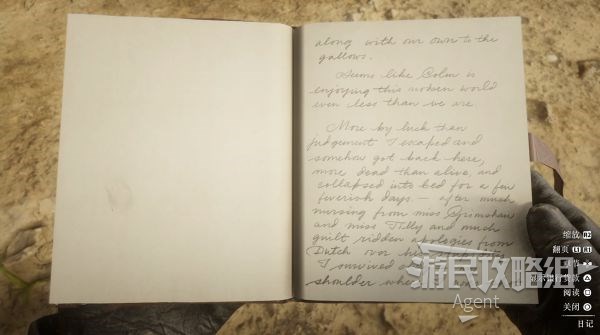 along with our own to the
gallows.
Seems like Colm is
enjoying this modern world
even less than we are
More by luck than
judgement I escaped and
somehow got back here,
more dead than alive, and
collapsed into bed for a few
feverish days. — after much
nursing from miss Grimshaw
and miss Tilly and much
guilt ridden apologies from
Dutch over
I survived
shoulder
游民攻略组
Agent
缩放 R2
翻页 L1 R1
阅读
关闭
日记